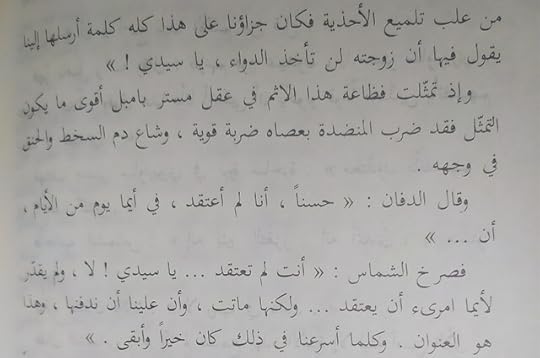 من علب تلميع الأحذية فكان جزاؤنا على هذا كله كلمة أرسلها إلينا
يقول فيها أن زوجته لن تأخذ الدواء ، يا سيدي ! »
وإذ تمثّلت فظاعة هذا الاثم في عقل مستر بامبل أقوى ما يكون
التمثّل فقد ضرب المنضدة بعصاه ضربة قوية ، وشاع دم السخط والحنق
في وجهه .
وقال الدفان : « حسناً ، أنا لم أعتقد ، في أيما يوم من الأيام ،
أن ... »
فصرخ الشماس : « أنت لم تعتقد ... يا سيدي ! لا ، ولم يقدّر
لأيما امرىء أن يعتقد ... ولكنها ماتت ، وأن علينا أن ندفنها ، وهذا
هو العنوان . وكلما أسرعنا في ذلك كان خيراً وأبقى . »